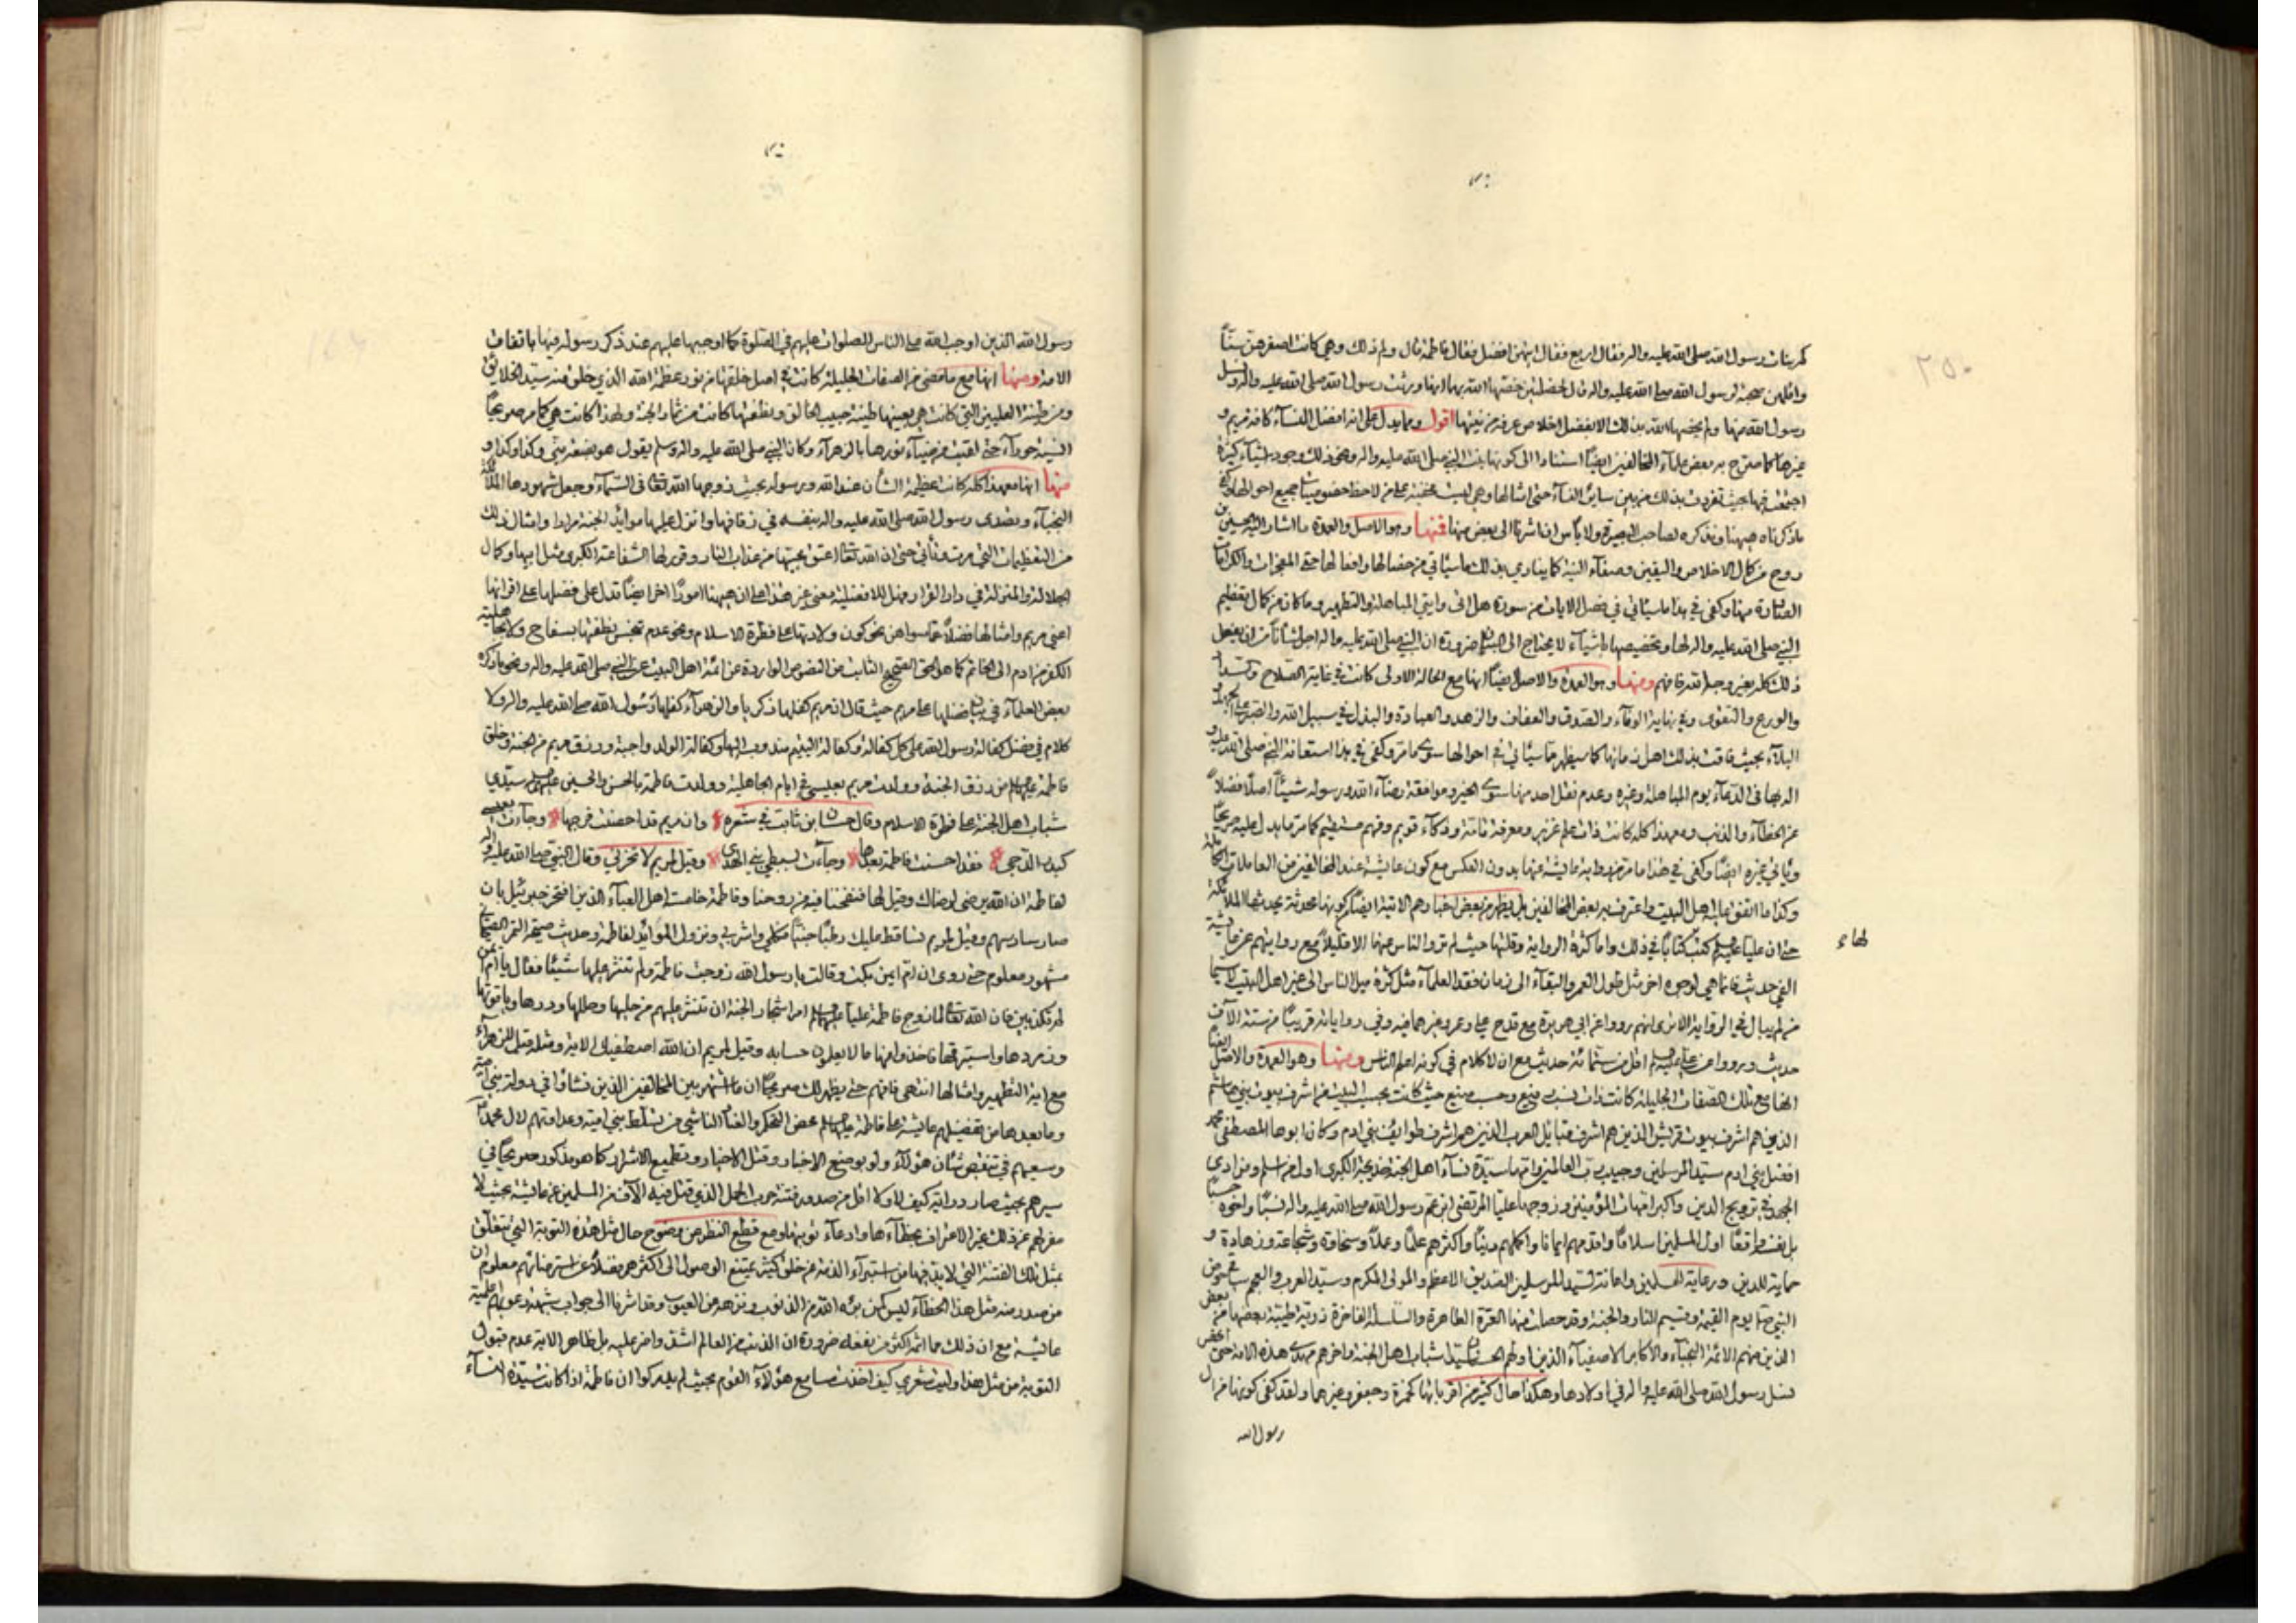 ٢٥٠
كم بنات رسول الله صلى الله عليه واله فقال اربع فقال ايتهن افضل فقال فاطمة قال ولم ذلك وهي كانت اصغرهن سنّاً
واقلهن صحبة لرسول الله صلى الله عليه واله قال لخصلتين خصّها الله بهما انها ورثت رسول الله صلى الله عليه واله ونسل
رسول الله منها ولم يخصها الله بذلك الا بفضل اخلاص عرفه من نيتها اقول ومما يدل على انها افضل النسآء كافة مريم و
غيرها كما صرّح به بعض علمآء المخالفين ايضاً استنادا الى كونها بنت النبي صلى الله عليه واله ونحو ذلك وجود اشيآء كثيرة
اجتمعت فيها بحيث تفردت بذلك من بين ساير النسآء حتى امثالها وهي ليست مخفية على من لاحظ جميع احوالها
ما ذكرناه هيهنا ونذكره لصاحب البصيرة ولا بأس ان اشرنا الى بعض منها فمنها وهو الاصل والعمدة ما اشار اليه الحسين بن
روح من كمال الاخلاص واليقين وصفآء النية كما ينادي بذلك ما سيأتي من خصالها وافعالها حتى المعجزات والكرامات
الصادرة منها وكفى في هذا ما سيأتي في فضل الايات من سورة هل اتى وايتي المباهلة والتطهير وما كان من كمال تعظيم
النبي صلى الله عليه واله لها وتخصيصها باشيآء لا يحتاج الى البيان ضرورة ان النبي صلى الله عليه واله اجل شأناً من ان يفعل
ذلك كله بغير وجه لله فافهم ومنها وهو العمدة والاصل ايضاً انها مع الحالة الاولى كانت في غاية الصلاح
والورع والتقوى وفي نهاية الوفآء والصدق والعفاف والزهد والعبادة والبذل في سبيل الله والصبر على
البلآء بحيث فاقت بذلك اهل زمانها كما سيظهر مما سيأتي في احوالها سوى ما مر وكفى في هذا استعانة النبي صلى الله عليه و
اله بها في الدعآء يوم المباهلة وغيره وعدم نقل احد منها سوى الخير وموافقة رضآء الله ورسوله شيئاً اصلا فضلاً
عن الخطآء والذنب ومع هذا كله كانت ذات علم غزير ومعرفة تامة وذكآء قويم وفهم مستقيم كما مر ما يدل عليه صريحاً
ويأتي غيره ايضاً وكفى في هذا ما مر من رواية عايشة عنها بدون العكس مع كون عايشة عند المخالفين من العاملات
وكذا ما اتفق عليه اهل البيت واعترف به بعض المخالفين بل يظهر من بعض اخبارهم الاتية ايضاً كونها محدثة يحدثها الملائكة
حتى ان عليا عليه السلم كتب كتابا في ذلك واما كثرة الرواية وقلتها حيث لم ترو الناس عنها الا قليلاً مع روايتهم عن عايشة
لهاء
الفي حديث فانما هي لوجوه اخر مثل طول العمر والبقآء الى زمان فقد العلمآء مثل كثرة ميل الناس الى غير اهل البيت لا سيما
من لم يبال في الرواية الا ترى انهم رووا عن ابي هريرة مع قدح علي وعمر وغيرهما فيه وفي رواياته قريباً من ستة الآف
حديث ورووا عن علي عليه السلم اقل من ستمائة حديث مع ان لا كلام في كونه اعلم الناس ومنها وهو العمدة والاصل ايضاً
انها مع تلك الصفات الجليلة كانت ذات نسب رفيع وحسب منيع حيث كانت بحسب البيت من اشرف بيوت بني هاشم
الذين هم اشرف بيوت قريش الذين هم اشرف قبايل العرب الذين هم اشرف طوايف بني ادم وكان ابوها المصطفى محمد
افضل بني ادم سيد المرسلين وحبيب رب العالمين وامها سيدة نسآء اهل الجنة خديجة الكبرى اول من اسلم ومن ادى
الجهد في ترويج الدين واكبر امهات المؤمنين وزوجها عليّاً المرتضى ابن عم رسول الله صلى الله عليه واله نسباً واخوه حسباً
بل نفسه واقعاً اول المسلمين اسلاماً واقدمهم ايمانا واكملهم ديناً واكثرهم علماً وعملاً وسخاوة وشجاعة وزهادة و
حماية للدين ورعاية للمسلمين واعانة لسيد المرسلين الصديق الاعظم والمولى المكرم وسيد العرب والعجم ساقي حوض
النبي صلعم يوم القيمة وقسيم النار والجنة وقد حصلت منها العترة الطاهرة والسلسلة الفاخرة ذرية طيبة بعضها من بعض
الذين منهم الائمة النجبآء والاكابر الاصفيآء الذين اولهم الحسنان سيدا شباب اهل الجنة واخرهم مهدي هذه الامة حتى انحصر
نسل رسول الله صلى الله عليه واله في اولادها وهكذا حال كثير من اقربائها كحمزة وجعفر وغيرهما ولقد كفى كونها من ال
رسول الله
رسول الله الذين اوجب الله على الناس الصلوات عليهم في الصلوة كما اوجبها عليهم عند ذكر رسوله فيها باتفاق
الامة ومنها انها مع ما مضى من الصفات الجليلة كانت في اصل خلقتها من نور عظمة الله الذي خلق منه سيد الخلايق
ومن طينة العليين التي كانت هي بعينها طينة حبيب الخالق ونطفتها كانت من ثمار الجنة ولهذا كانت هي كما مر صريحاً
انسية حورآء حتى لقبت من ضيآء نورها بالزهرآء وكان النبي صلى الله عليه واله وسلم يقول هو بضعة مني وكذا وكذا و
منها انها مع هذا كله كانت عظيمة الشأن عند الله ورسوله بحيث زوجها الله تعالى في السمآء وجعل شهودها الملائكة
النجبآء وتصدى رسول الله صلى الله عليه واله بنفسه في زفافها وانزل عليها موائد الجنة مرارا وامثال ذلك
من التعظيمات التي مرت وتأتي حتى ان الله تعالى اعتق محبيها من عذاب النار وقرر لها الشفاعة الكبرى مثل ابيها وكمال
الجلالة والمنزلة في دار القرار فهل للافضلية معنى غير هذا على ان هيهنا اموراً اخر ايضاً تدل على فضلها على اقرانها
اعني مريم وامثالها فضلاً عما سواهن نحو كون ولادتها على فطرة الاسلام ونحو عدم تنجس نطفتها بسفاح ولا جاهلية
الكفر من ادم الى الخاتم كما هو الحق الصحيح الثابت من النصوص الواردة عن ائمة اهل البيت عن النبي صلى الله عليه واله ونحو ما ذكره
بعض العلمآء في بيان فضلها على مريم حيث قال ان مريم كفلها زكريا والزهرآء كفلها رسول الله صلى الله عليه واله ولا
كلام في فضل كفالة رسول الله على كل كفالة وكفالة اليتيم مندوب اليها وكفالة الولد واجبة ورزق مريم من الجنة وخلق
فاطمة عليها السلم من رزق الجنة وولدت مريم بعيسى في ايام الجاهلية وولدت فاطمة بالحسن والحسين عليهم السلم سيدي
شباب اهل الجنة على فطرة الاسلام وقال حسان ابن ثابت في شعره وان مريم قد احصنت فرجها وجآءت بعيسى
كبدر الدجى فقد احصنت فاطمة بعدها وجآءت بسبطي نبي الهدى وقيل لمريم لا تحزني وقال النبي صلى الله عليه واله
لفاطمة ان الله يرضى لرضاك وقيل لها فنفخنا فيه من روحنا وفاطمة خامسة اهل العبآء الذين افتخر جبرئيل بان
صار سادسهم وقيل لمريم تساقط عليك رطباً جنياً فكلي واشربي ونزول الموائد لفاطمة وحديث
مشهور معلوم حتى روى ان ام ايمن بكت وقالت يا رسول الله زوجت فاطمة ولم تنثر عليها شيئاً فقال يا ام ايمن
لم تكذبين فان الله تعالى لما زوج فاطمة عليا عليهما السلم امر اشجار الجنة ان تنثر عليهم من حليها وحللها ودرها وياقوتها
وزمردها واستبرقها فاخذوا منها ما لا يعلمون حسابه وقيل لمريم ان الله اصطفيك الاية ومثله قيل للزهرآء
مع اية التطهير وامثالها انتهى فافهم حتى يظهر لك صريحاً ان ما اشتهر بين المخالفين الذين نشأوا في دولة بني امية
وما بعدها من تفضيلهم عايشة على فاطمة عليها السلم محض التحكم والعناد الناشي من تسلط بني امية وعداوتهم لال محمد
وسعيهم في تنقيص شأن هؤلآء ولو بوضع الاخبار وقتل الاخيار وتطميع الاشرار كما هو مذكور صريحاً في
سيرهم بحيث صار دواليه كيف لا ولا اقل من صدور فتنة حرب الجمل الذي قتل فيه الآف من المسلمين عن عايشة بحيث لا
مفر لهم عن ذلك غير الاعتراف بخطآءها وادعآء توبتها ومع قطع النظر عن وضوح حال مثل هذه التوبة التي تتعلق
بمثل تلك الفتنة التي لابد فيها من استبرآء الذمة عن خلق كثير يمتنع الوصول الى اكثرهم فضلاً عن استرضائهم معلوم ان
من صدر منه مثل هذا الخطآء ليس كمن برّءه الله من الذنوب ونزهه من العيوب وقد اشرنا الى جواب شبهة دعواهم اعلمية
عايشة مع ان ذلك مما اثمه اكثر من نفعه ضرورة ان الذنب من العالم اشق واضر عليه بل ظاهر الاية عدم قبول
التوبة من مثل هذا وليت شعري كيف اخفت مسامع هؤلآء القوم بحيث لم يدركوا ان فاطمة اذا كانت سيدة النسآء